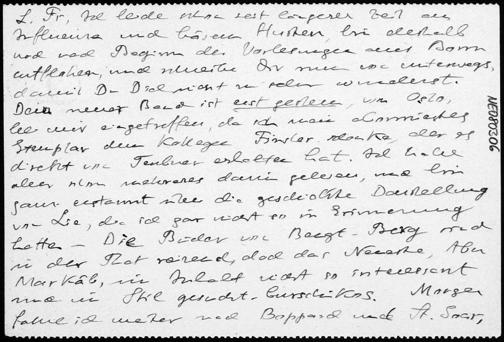 L. Fr, Ich leide schon seit längerer Zeit an
Influenza und bösem Husten, bin deshalb
nach Beginn der Vorlesungen aus Bonn
entflohen, und schreibe Dir nun von unterwegs,
damit Du Dich nicht zu sehr wunderst.
Dein neuer Band ist erst gestern, von Oslo,
bei mir eingetroffen, da ich mein abonniertes
Exemplar dem Kollegen schenkte, der es
direkt von Teubner erhalten hat. Ich habe
aber schon mehreres darin gelesen, und bin
ganz erstaunt über die geschickte Darstellung
von Lie, die ich gar nicht so in Erinnerung
hatte – Die Bücher von Bengt-Berg sind
in der That reizend, doch das Neueste, Abu
Markúb, im Inhalt nicht so interessant
und im Stil gesucht-burschikos. Morgen
fahre ich weiter nach Boppard und St. Goar,
NEU00306